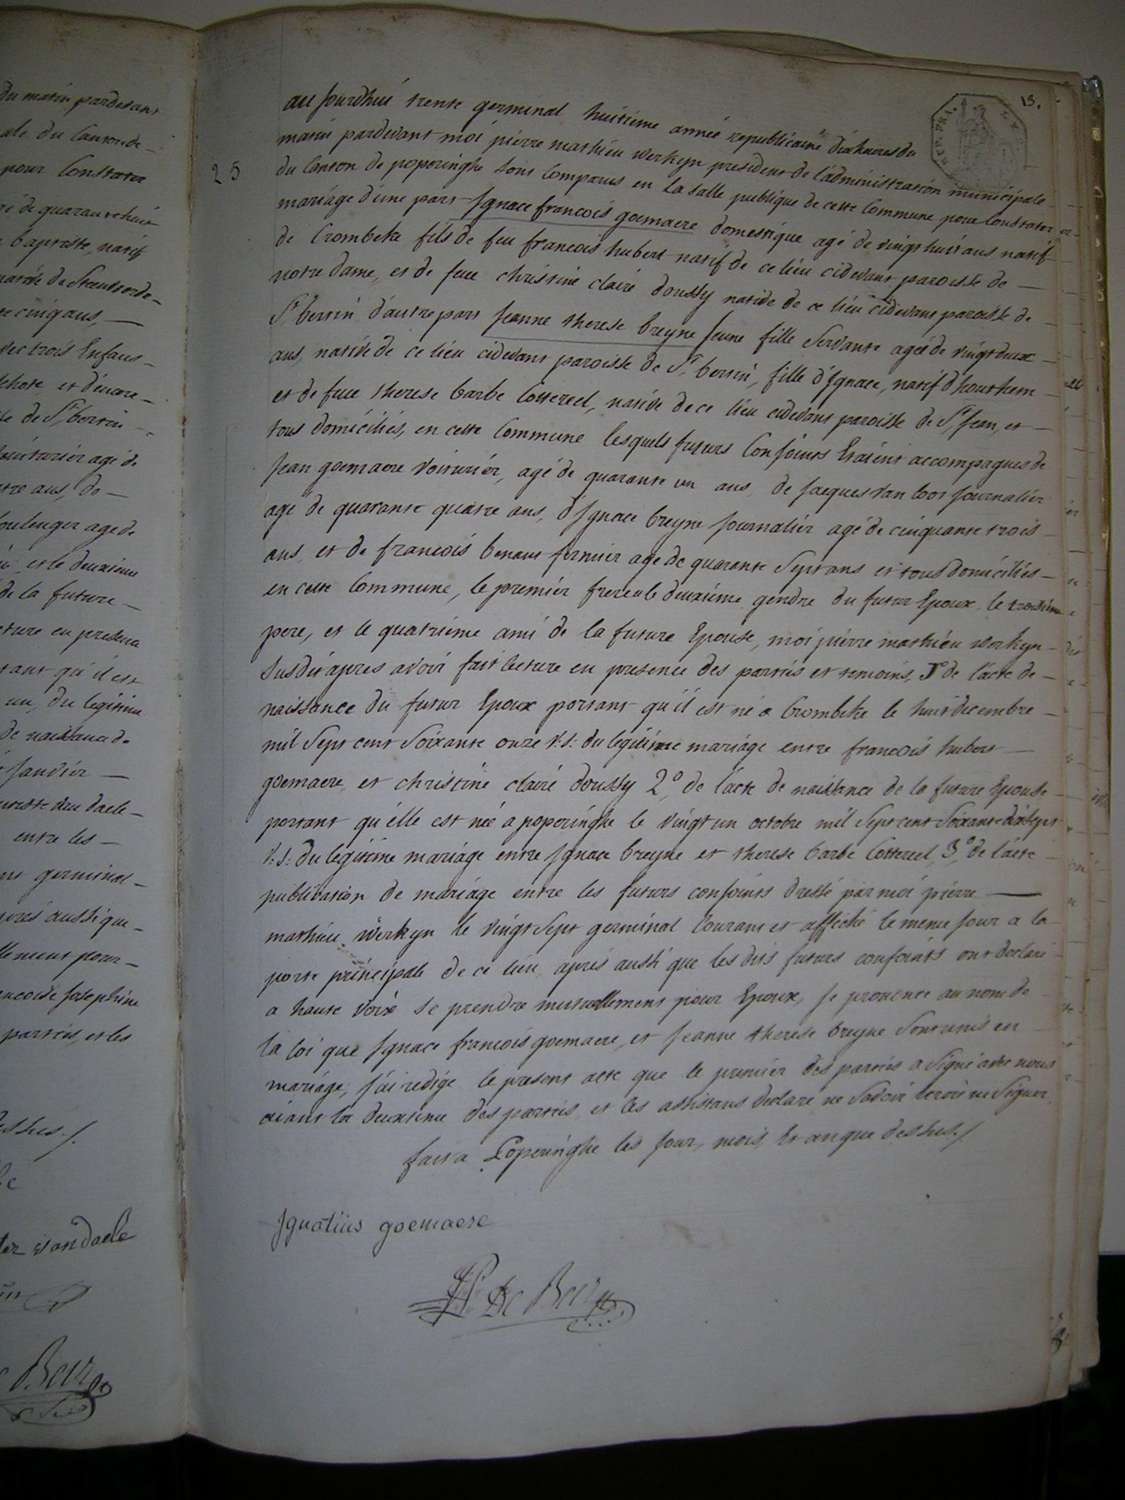 du matin pardevant
ale du Canton de
pour Constater
gé de quarante huit
Baptiste, natif
cinq ans,
trois Enfans
de St. bertin
agé de
tre ans, de
boulenger agé de
et le deuxieme
de la future
cture en presence
tant qu'il est
du legitime
de naissance de
Janvier
entre les
germinal
aprés aussi que
llement pour
ancoise Josephine
parties, et les
13.
25
aujourdhui trente germinal huitieme année republicaine dix heures du
matin pardevant moi pierre mathieu werkyn president de l'administration municipale
du Canton de poperinghe sont Comparus en la salle publique de cette Commune pour Constater
mariage d'une part Ignace francois goemaere domestique agé de vingt huit ans natif
de Crombeke fils de feu francois hubert natif de ce lieu cidevant paroisse de
notre dame, et de feue christine claire doussy native de ce lieu cidevant paroisse de
St. bertin d'autre part Jeanne therese breyne Jeune fille Servante ageé de vingt deux
ans, native de ce lieu cidevant paroisse de St. bertin, fille d'Ignace, natif d'houthem
et de feue therese barbe Cottereel, native de ce lieu cidevant paroisse de St. Jean, et
tous domiciliés, en cette Commune lesquels futurs Conjoints Etaient accompagnés de
Jean goemaere voiturier, agé de quarante un ans, de Jacques van loos Journalier
agé de quarante quatre ans, d'Ignace breyne Journalier agé de cinquante trois
ans, et de francois benaut fermier agé de quarante Sept ans et tous domiciliés
en cette Commune, le premier frere le deuxieme gendre du futur Epoux, le troisieme
pere, et le quatrieme ami de la future Epouse, moi pierre mathieu werkyn
Susdit aprés avoir fait lecture en presence des parties et temoins, 1° de l'acte de
naissance du futur Epoux portant qu'il est né a Crombeke le huit decembre
mil Sept cent Soixante onze v.s. du legitime mariage entre francois hubert
goemaere, et christine claire doussy 2°, de l'acte de naissance de la future Epouse
portant qu'elle est née a poperinghe le vingt un octobre mil Sept cent Soixante dix Sept
v.s. du legitime mariage entre Ignace breyne et therese barbe Cottereel, 3° de l'acte
publication de mariage entre les futurs conjoints dressé par moi pierre
mathieu werkyn le vingt Sept germinal Courant et affiché le meme Jour a la
porte principale de ce lieu aprés aussi que les dits futurs conjoints ont declaré
a haute voix se prendre mutuellement pour Epoux, Je prononce au nom de
la loi que Ignace francois goemaere, et Jeanne therese breyne Sont unis en
mariage, J'ai redigé le present acte que le premier des parties a Signé avec nous
aiant la deuxieme des parties et les assistans declaré ne Savoir Ecrire ni Signer
fait a Poperinghe les Jour, mois, Et an que dessus./
Ignatius goemaere
De Beir